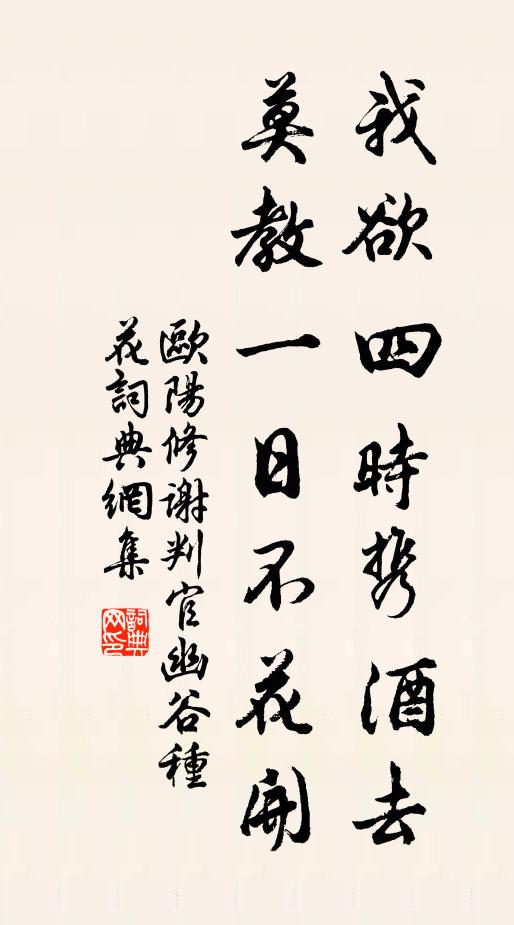 我欲四時携酒去
莫教一日不花開
歐陽修謝判官幽谷種
花詞典網集
詞典
网印